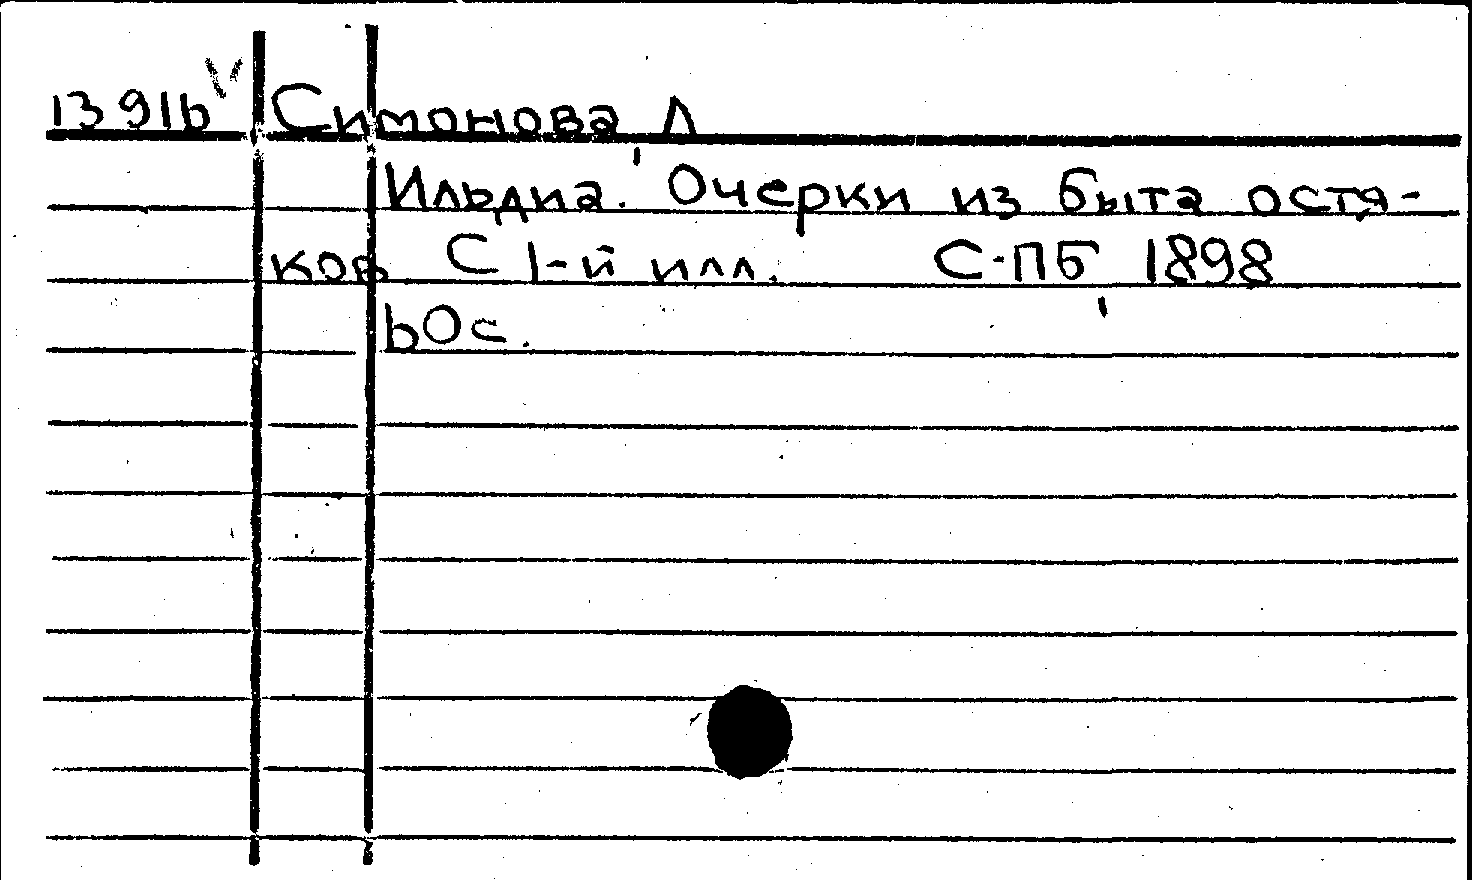 1391b V Симонова Л
Ильдиа. Очерки из быта остя-
ков С 1-й илл. С-ПБ 1898
60 с.